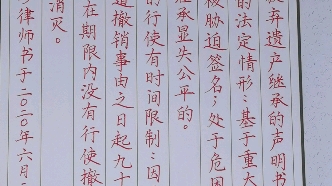 放弃遗产继承的声明书
的法定情形：基于重大
被胁迫签名；处于危困
继承显失公平的。
的行使有时间限制：因
道撤销事由之日起九十
在期限内没有行使撤
消灭。
律师书于二〇二〇年六月